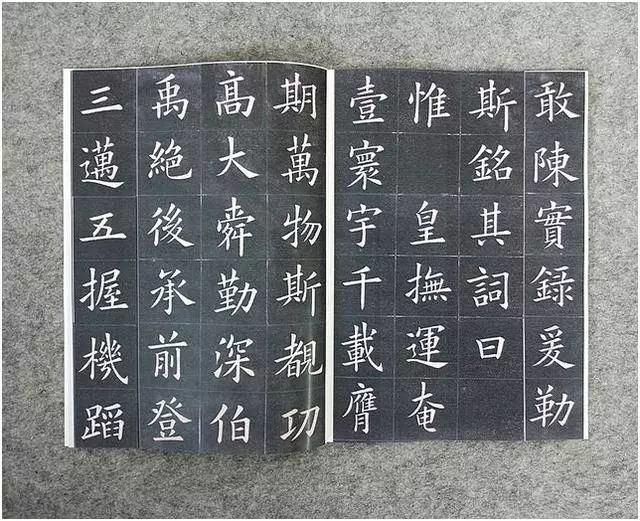 敢陳實錄爰勒
斯銘其詞曰
惟 皇撫運奄
壹寰宇千載膺
期萬物斯覩功
髙大舜勤深伯
禹絕後承前登
三邁五握機蹈